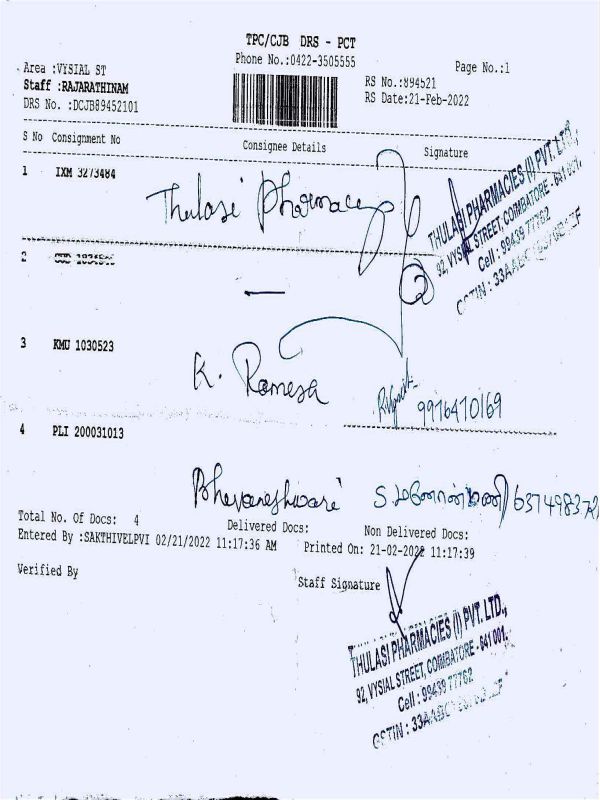 TPC/CJB DRS - PCT
Phone No.:0422-3505555
Page No.:1
Area :VYSIAL ST
Staff :RAJARATHINAM
DRS No. :DCJB89452101
RS No.:894521
RS Date:21-Feb-2022
S No Consignment No Consignee Details Signature
1 IXM 3273484
Thulasi Pharmacy
THULASI PHARMACIES (I) PVT. LTD.,
92, VYSIAL STREET, COIMBATORE - 641 001.
Cell : 99439 77762
GSTIN : 33AABC
2
3 KMU 1030523
K. Ramesh
9976410169
4 PLI 200031013
Bhuvaneshwari S.மனோன்மணி
Total No. Of Docs: 4 Delivered Docs: Non Delivered Docs:
Entered By :SAKTHIVELPVI 02/21/2022 11:17:36 AM Printed On: 21-02-2022 11:17:39
Verified By Staff Signature
THULASI PHARMACIES (I) PVT. LTD.,
92, VYSIAL STREET, COIMBATORE - 641 001.
Cell : 99439 77762
GSTIN : 33AABC